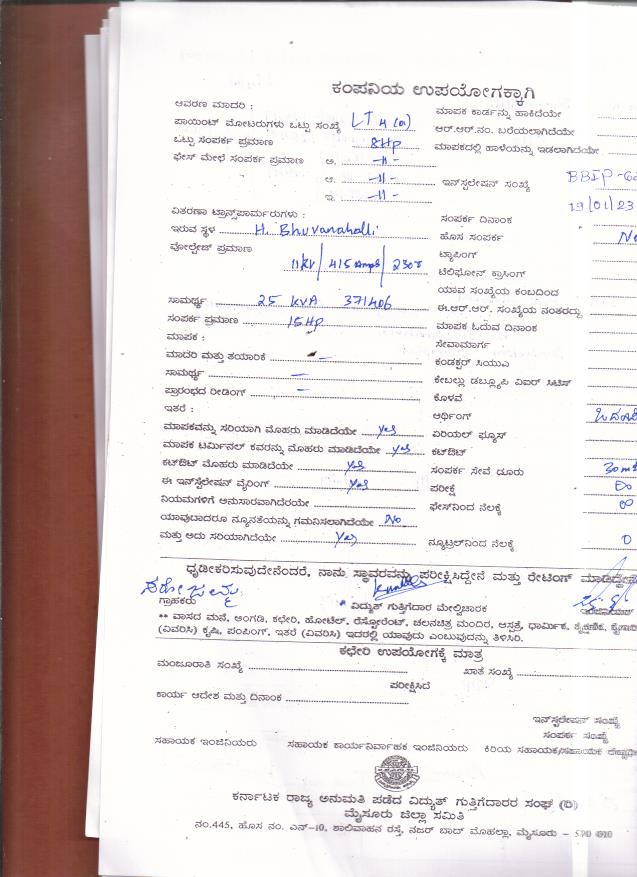 ಕಂಪನಿಯ ಉಪಯೋಗಕ್ಕಾಗಿ
ಆವರಣ ಮಾದರಿ :
ಮಾಪಕ ಕಾರ್ಡನ್ನು ಹಾಕಿದೆಯೇ
ಪಾಯಿಂಟ್ ಮೋಟರುಗಳು ಒಟ್ಟು ಸಂಖ್ಯೆ LT 4 (a)
ಆರ್.ಆರ್.ನಂ. ಬರೆಯಲಾಗಿದೆಯೇ
ಒಟ್ಟು ಸಂಪರ್ಕ ಪ್ರಮಾಣ 8HP
ಮಾಪಕದಲ್ಲಿ ಹಾಳೆಯನ್ನು ಇಡಲಾಗಿದೆಯೇ
ಫೇಸ್ ಮೇಲೆ ಸಂಪರ್ಕ ಪ್ರಮಾಣ ಅ. -11-
ಆ. -11- ಇನ್‌ಸ್ಟಲೇಷನ್ ಸಂಖ್ಯೆ BBIP-
ಇ. -11-
19/01/23
ವಿತರಣಾ ಟ್ರಾನ್ಸ್‌ಪಾರ್ಮರುಗಳು : ಸಂಪರ್ಕ ದಿನಾಂಕ
ಇರುವ ಸ್ಥಳ H. Bhuvanahalli ಹೊಸ ಸಂಪರ್ಕ
ವೋಲ್ಟೇಜ್ ಪ್ರಮಾಣ 11kV/415 Amps/230V ಟ್ಯಾಪಿಂಗ್
ಟೆಲಿಫೋನ್ ಕ್ರಾಸಿಂಗ್
ಯಾವ ಸಂಖ್ಯೆಯ ಕಂಬದಿಂದ
ಸಾಮರ್ಥ್ಯ 25 KVA 371406 ಈ.ಆರ್.ಆರ್. ಸಂಖ್ಯೆಯ ನಂತರದ್ದು
ಸಂಪರ್ಕ ಪ್ರಮಾಣ 15HP ಮಾಪಕ ಓದುವ ದಿನಾಂಕ
ಮಾಪಕ : ಸೇವಾಮಾರ್ಗ
ಮಾದರಿ ಮತ್ತು ತಯಾರಿಕೆ – ಕಂಡಕ್ಟರ್ ಸಿಯುಎ
ಸಾಮರ್ಥ್ಯ – ಕೇಬಲ್ಲು ಡಬ್ಲ್ಯೂಪಿ ವಿಐರ್ ಸಿಟಿಸ್
ಪ್ರಾರಂಭದ ರೀಡಿಂಗ್ – ಕೊಳವೆ
ಇತರೆ : ಆರ್ಥಿಂಗ್
ಮಾಪಕವನ್ನು ಸರಿಯಾಗಿ ಮೊಹರು ಮಾಡಿದೆಯೇ Yes ಏರಿಯಲ್ ಫ್ಯೂಸ್
ಮಾಪಕ ಟರ್ಮಿನಲ್ ಕವರನ್ನು ಮೊಹರು ಮಾಡಿದೆಯೇ Yes ಕಟ್‌ಔಟ್
ಕಟ್‌ಔಟ್ ಮೊಹರು ಮಾಡಿದೆಯೇ Yes ಸಂಪರ್ಕ ಸೇವೆ ದೂರು
ಈ ಇನ್‌ಸ್ಟಲೇಷನ್ ವೈರಿಂಗ್ Yes ಪರೀಕ್ಷೆ ∞
ನಿಯಮಗಳಿಗೆ ಅನುಸಾರವಾಗಿದೆರಯೇ ಫೇಸ್‌ನಿಂದ ನೆಲಕ್ಕೆ ∞
ಯಾವುದಾದರೂ ನ್ಯೂನತೆಯನ್ನು ಗಮನಿಸಲಾಗಿದೆಯೇ No
ಮತ್ತು ಅದು ಸರಿಯಾಗಿದೆಯೇ Yes ನ್ಯೂಟ್ರಲ್‌ನಿಂದ ನೆಲಕ್ಕೆ 0
ಧೃಡೀಕರಿಸುವುದೇನೆಂದರೆ, ನಾನು ಸ್ಥಾವರವನ್ನು ಪರೀಕ್ಷಿಸಿದ್ದೇನೆ ಮತ್ತು ರೇಟಿಂಗ್
ಗ್ರಾಹಕರು * ವಿದ್ಯುತ್ ಗುತ್ತಿಗೆದಾರ ಮೇಲ್ವಿಚಾರಕ
** ವಾಸದ ಮನೆ, ಅಂಗಡಿ, ಕಛೇರಿ, ಹೋಟೆಲ್, ರೆಸ್ಟೋರೆಂಟ್, ಚಲನಚಿತ್ರ ಮಂದಿರ, ಆಸ್ಪತ್ರೆ, ಧಾರ್ಮಿಕ, ಶೈಕ್ಷಣಿಕ,
(ವಿವರಿಸಿ) ಕೃಷಿ, ಪಂಪಿಂಗ್, ಇತರೆ (ವಿವರಿಸಿ) ಇದರಲ್ಲಿ ಯಾವುದು ಎಂಬುವುದನ್ನು ತಿಳಿಸಿರಿ.
ಕಛೇರಿ ಉಪಯೋಗಕ್ಕೆ ಮಾತ್ರ
ಮಂಜೂರಾತಿ ಸಂಖ್ಯೆ ಖಾತೆ ಸಂಖ್ಯೆ
ಪರೀಕ್ಷಿಸಿದೆ
ಕಾರ್ಯ ಆದೇಶ ಮತ್ತು ದಿನಾಂಕ
ಇನ್‌ಸ್ಟಲೇಷನ್ ಸಂಖ್ಯೆ
ಸಂಪರ್ಕ ಸಂಖ್ಯೆ
ಸಹಾಯಕ ಇಂಜಿನಿಯರು ಸಹಾಯಕ ಕಾರ್ಯನಿರ್ವಾಹಕ ಇಂಜಿನಿಯರು ಕಿರಿಯ ಸಹಾಯಕ/ಸಹಾಯಕ
ಕರ್ನಾಟಕ ರಾಜ್ಯ ಅನುಮತಿ ಪಡೆದ ವಿದ್ಯುತ್ ಗುತ್ತಿಗೆದಾರರ ಸಂಘ (ರಿ)
ಮೈಸೂರು ಜಿಲ್ಲಾ ಸಮಿತಿ
ನಂ.445, ಹೊಸ ನಂ. ಎನ್-10, ಶಾಲಿವಾಹನ ರಸ್ತೆ, ನಜರ್ ಬಾದ್ ಮೊಹಲ್ಲಾ, ಮೈಸೂರು – 570 010